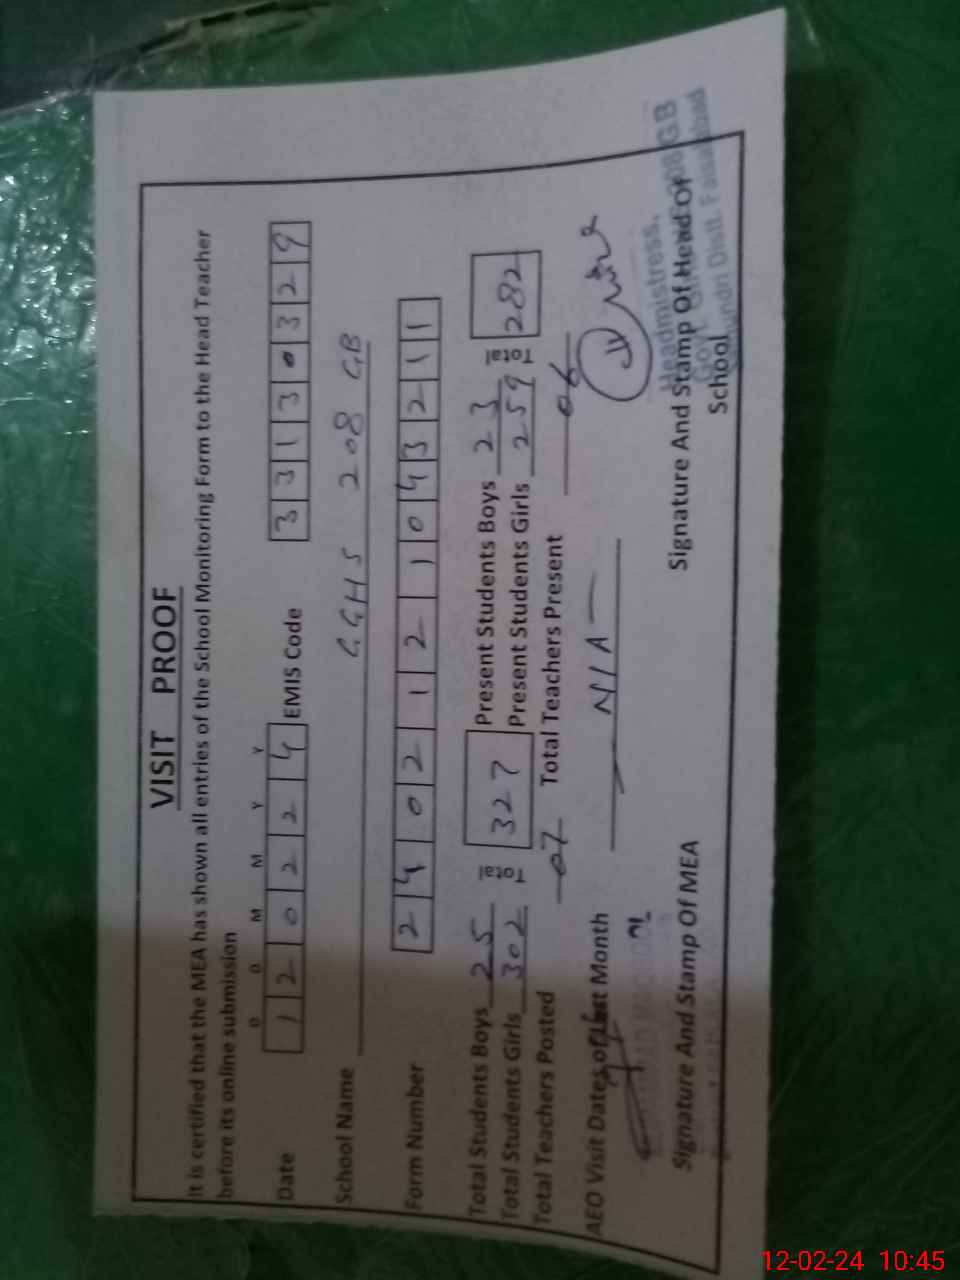 VISIT PROOF
It is certified that the MEA has shown all entries of the School Monitoring Form to the Head Teacher
before its online submission
D D M M Y Y
Date 1 2 0 2 2 4 EMIS Code 3 3 1 3 0 3 2 9
School Name GGHS 208 GB
Form Number 2 4 0 2 1 2 1 0 4 3 2 1 1
Total Students Boys 25 Total 327 Present Students Boys 23 Total 282
Total Students Girls 302 Present Students Girls 259
Total Teachers Posted 07 Total Teachers Present 06
AEO Visit Dates of Last Month N/A
Headmistress,
208 GB
Distt. Faisalabad
Signature And Stamp Of MEA Signature And Stamp Of Head Of
School
12-02-24 10:45